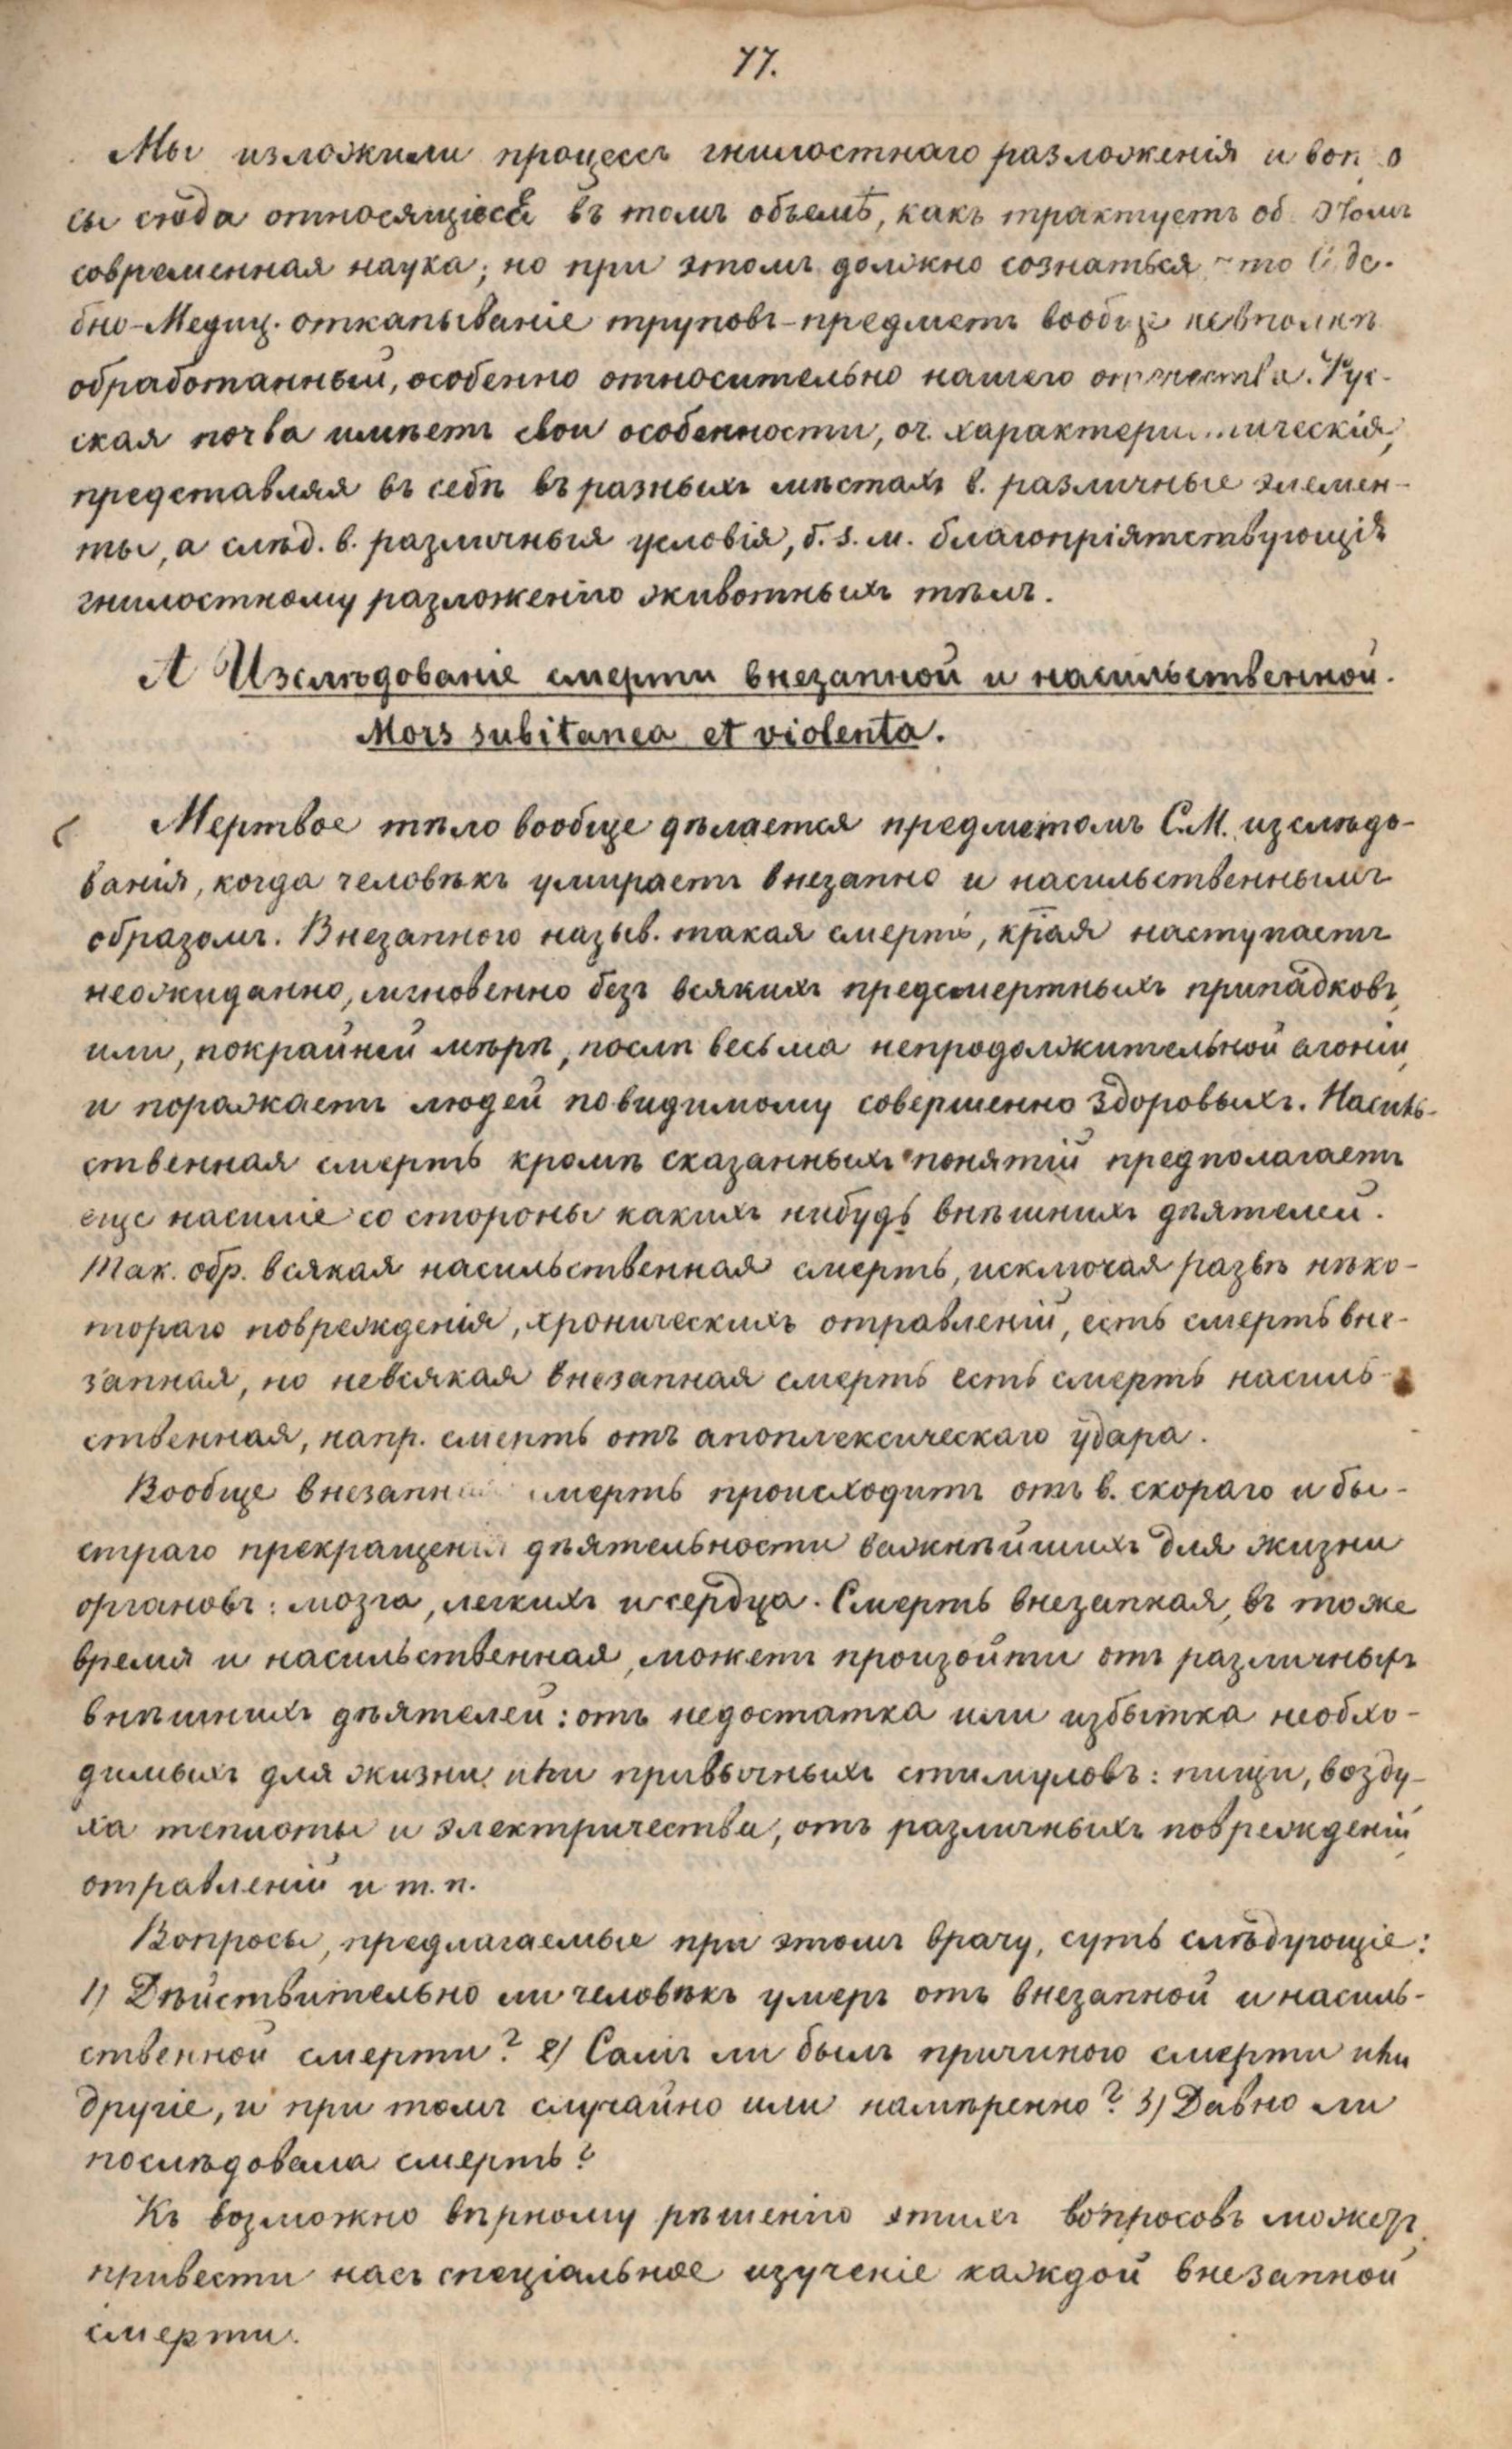 77.
Мы изложили процессъ гнилостнаго разложенія и вопро
сы сюда относящіеся въ томъ объемѣ, какъ трактуетъ об этомъ
современная наука; но при этомъ должно сознаться что Суде-
бно-Медиц. откапываніе труповъ - предметъ вообще невполнѣ
обработанный, особенно относительно нашего отечества. Рус-
ская почва имѣетъ свои особенности, оч. характеристическія,
представляя въ себѣ въ разныхъ мѣстахъ в. различные элемен-
ты, а слѣд. в. различныя условія, б. з. м. благопріятствующія
гнилостному разложенію животныхъ тѣлъ.
А Изслѣдованіе смерти внезапной и насильственной.
Mors subitanea et violenta.
Мертвое тѣло вообще дѣлается предметомъ С.М. изслѣдо-
ванія, когда человѣкъ умираетъ внезапно и насильственнымъ
образомъ. Внезапною назыв. такая смерть, края наступаетъ
неожиданно, мгновенно безъ всякихъ предсмертныхъ припадковъ,
или, покрайней мѣрѣ, послѣ весьма непродолжительной агоніи,
и поражаетъ людей повидимому совершенно здоровыхъ. Насиль-
ственная смерть кромѣ сказанныхъ понятій предполагаетъ
еще насиліе со стороны какихъ нибудь внѣшнихъ дѣятелей.
Так. обр. всякая насильственная смерть, исключая развѣ нѣко-
тораго поврежденія, хроническихъ отравленій, есть смерть вне-
запная, но невсякая внезапная смерть есть смерть насиль-
ственная, напр. смерть отъ апоплексическаго удара.
Вообще внезапная смерть происходитъ отъ в. скораго и бы-
страго прекращенія дѣятельности важнѣйшихъ для жизни
органовъ: мозга, легкихъ и сердца. Смерть внезапная, въ тоже
время и насильственная, можетъ произойти отъ различныхъ
внѣшнихъ дѣятелей: отъ недостатка или избытка необхо-
димыхъ для жизни или привычныхъ стимуловъ: пищи, возду-
ха теплоты и электричества, отъ различныхъ поврежденій,
отравленій и т. п.
Вопросы, предлагаемые при этомъ врачу, суть слѣдующіе:
1) Дѣйствительно ли человѣкъ умеръ отъ внезапной и насиль-
ственной смерти? 2) Самъ ли былъ причиною смерти или
другіе, и при томъ случайно или намѣренно? 3) Давно ли
послѣдовала смерть?
Къ возможно вѣрному рѣшенію этихъ вопросовъ можетъ
привести насъ спеціальное изученіе каждой внезапной
смерти.